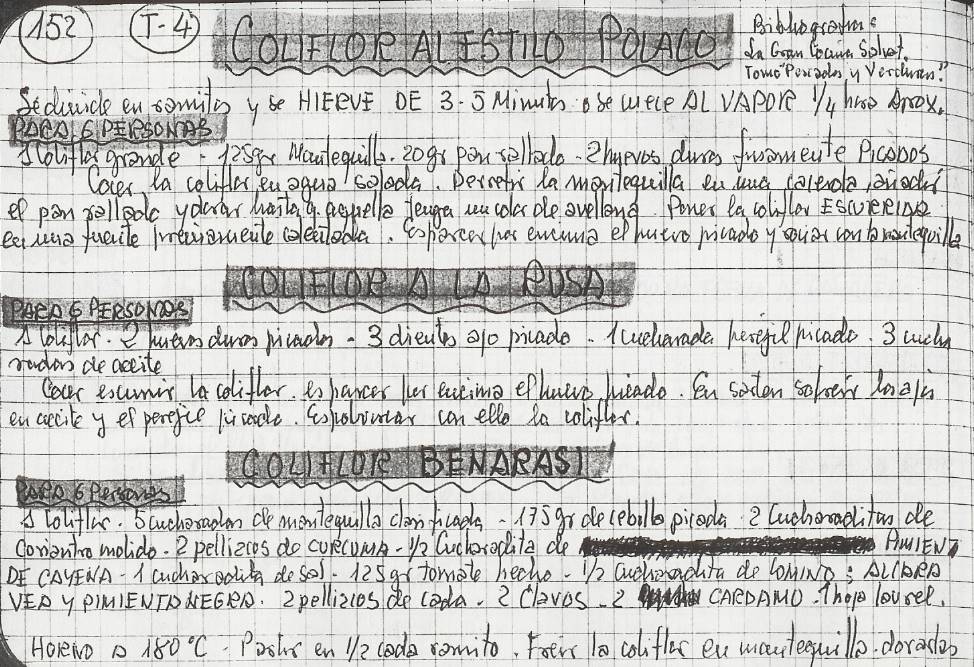 152 T-4 COLIFLOR AL ESTILO POLACO
Bibliografia:
La Gran Cocina Salvat.
Tomo "Pescados y Verduras"
Se divide en ramitos y se HIERVE DE 3-5 Minutos o se cuece AL VAPOR 1/4 hora Aprox.
PARA 6 PERSONAS
1 Coliflor grande - 125gr Mantequilla. 20gr pan rallado - 2 huevos duros finamente PICADOS
Cocer la coliflor en agua salada. Derretir la mantequilla en una cacerola, añadir
el pan rallado y dorar hasta q. aquella tenga un color de avellana. Poner la coliflor ESCURRIDA
en una fuente previamente calentada. Esparcer por encima el huevo picado y rociar con la mantequilla
COLIFLOR A LA RUSA
PARA 6 PERSONAS
1 Coliflor. 2 huevos duros picados - 3 dientes ajo picado. 1 Cucharada perejil picado. 3 cucha
radas de aceite
Cocer escurrir la coliflor. esparcer por encima el huevo picado. En sarten sofreir los ajos
en aceite y el perejil picado. Espolvorear con ello la coliflor.
COLIFLOR BENARASI
PARA 6 Personas
1 Coliflor. 5 cucharadas de mantequilla clarificada - 175 gr de cebolla picada. 2 Cucharaditas de
Coriantro molido - 2 pellizcos de CURCUMA - 1/2 Cucharadita de PIMIENT
DE CAYENA - 1 cucharadita de sal - 125 gr tomate hecho - 1/2 Cucharadita de COMINO; ALCARA
VEA Y PIMIENTA NEGRA. 2 pellizcos de cada - 2 Clavos - 2 CARDAMO. 1 hoja laurel.
HORNO A 180°C - Partir en 1/2 cada ramito. Freir la coliflor en mantequilla. doradas